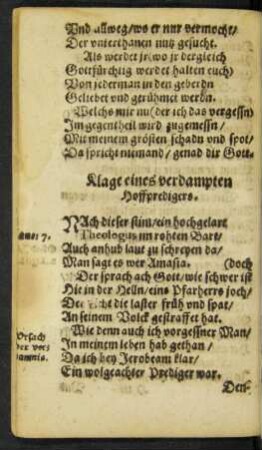 Vnd allweg/wo er nur vermocht/
Der vnterthanen nutz gesucht.
Als werdet jr(wo jr dergleich
Gottfürchtig werdet halten euch)
Von jederman in den geberdn
Geliebet vnd gerühmet werdn.
Welchs mir nu(der ich das vergessn)
Im gegentheil wird zugemessn/
Mit meinem grösten schadn vnd spot/
Da spricht niemand/genad dir Gott.
Klage eines verdampten
Hoffpredigers.
NAch dieser stim/ein hochgelart
Theologus im rohten Bart/
Auch anhub laut zu schreyen da/
Man sage es wer Amasia. (doch
Der sprach ach Gott/wie schwer ist
Hie in der Helln/eins Pfarherrs joch/
die laster früh vnd spat/
An seinem Volck gestraffet hat.
Wie denn auch ich vorgessner Man/
In meinem leben hab gethan/
Da ich bey Jerobeam klar/
Ein wolgeachter Prediger war.
Den-
7.
Vrsach
der ver-